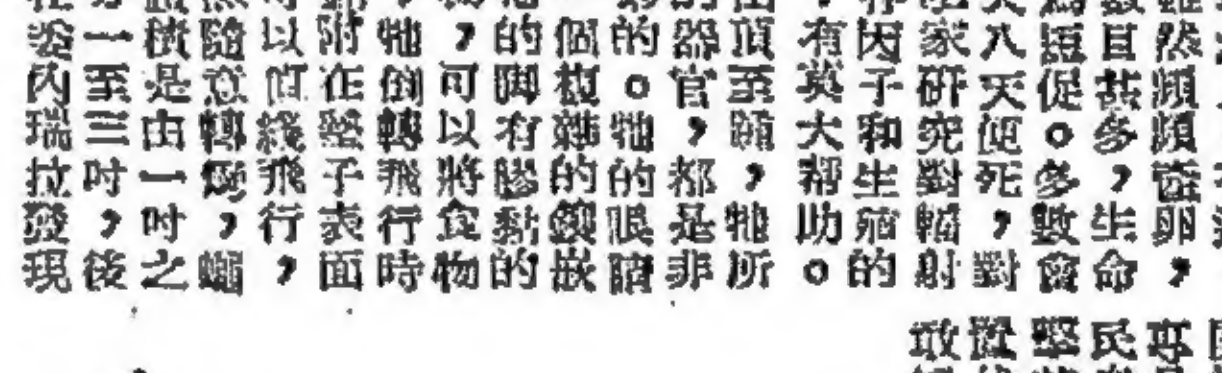 然頻頻產卵，
目甚多，生命
短促。多數會
八天便死，對
家研究對輻射
因子和生殖的
有英大帮助。
頂至頤，牠所
器官，都是非
的。牠的眼睛
個複雜的鑲嵌
的脚有膠黏的
，可以將食物
牠倒轉飛行時
附在竪子表面
以直綫飛行，
隨意轉變，蠅
積是由一吋之
一至三吋，後
委內瑞拉發現
專
民
堅
置
敢